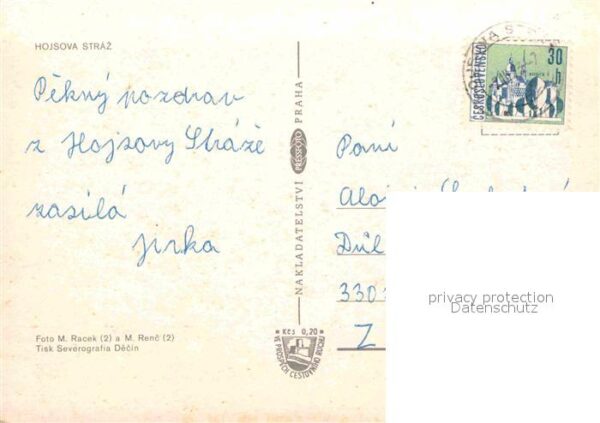 HOJSOVA STRÁŽ
Pěkný pozdrav
z Hojsovy Stráže
zasílá
Jirka
Foto M. Racek (2) a M. Renč (2)
Tisk Severografia Děčín
NAKLADATELSTVÍ PRESSFOTO PRAHA
Kčs 0,20
VE PROSPĚCH CESTOVNÍHO RUCHU
ČESKOSLOVENSKO
30
h
Paní
Důl
330
Z
privacy protection
Datenschutz